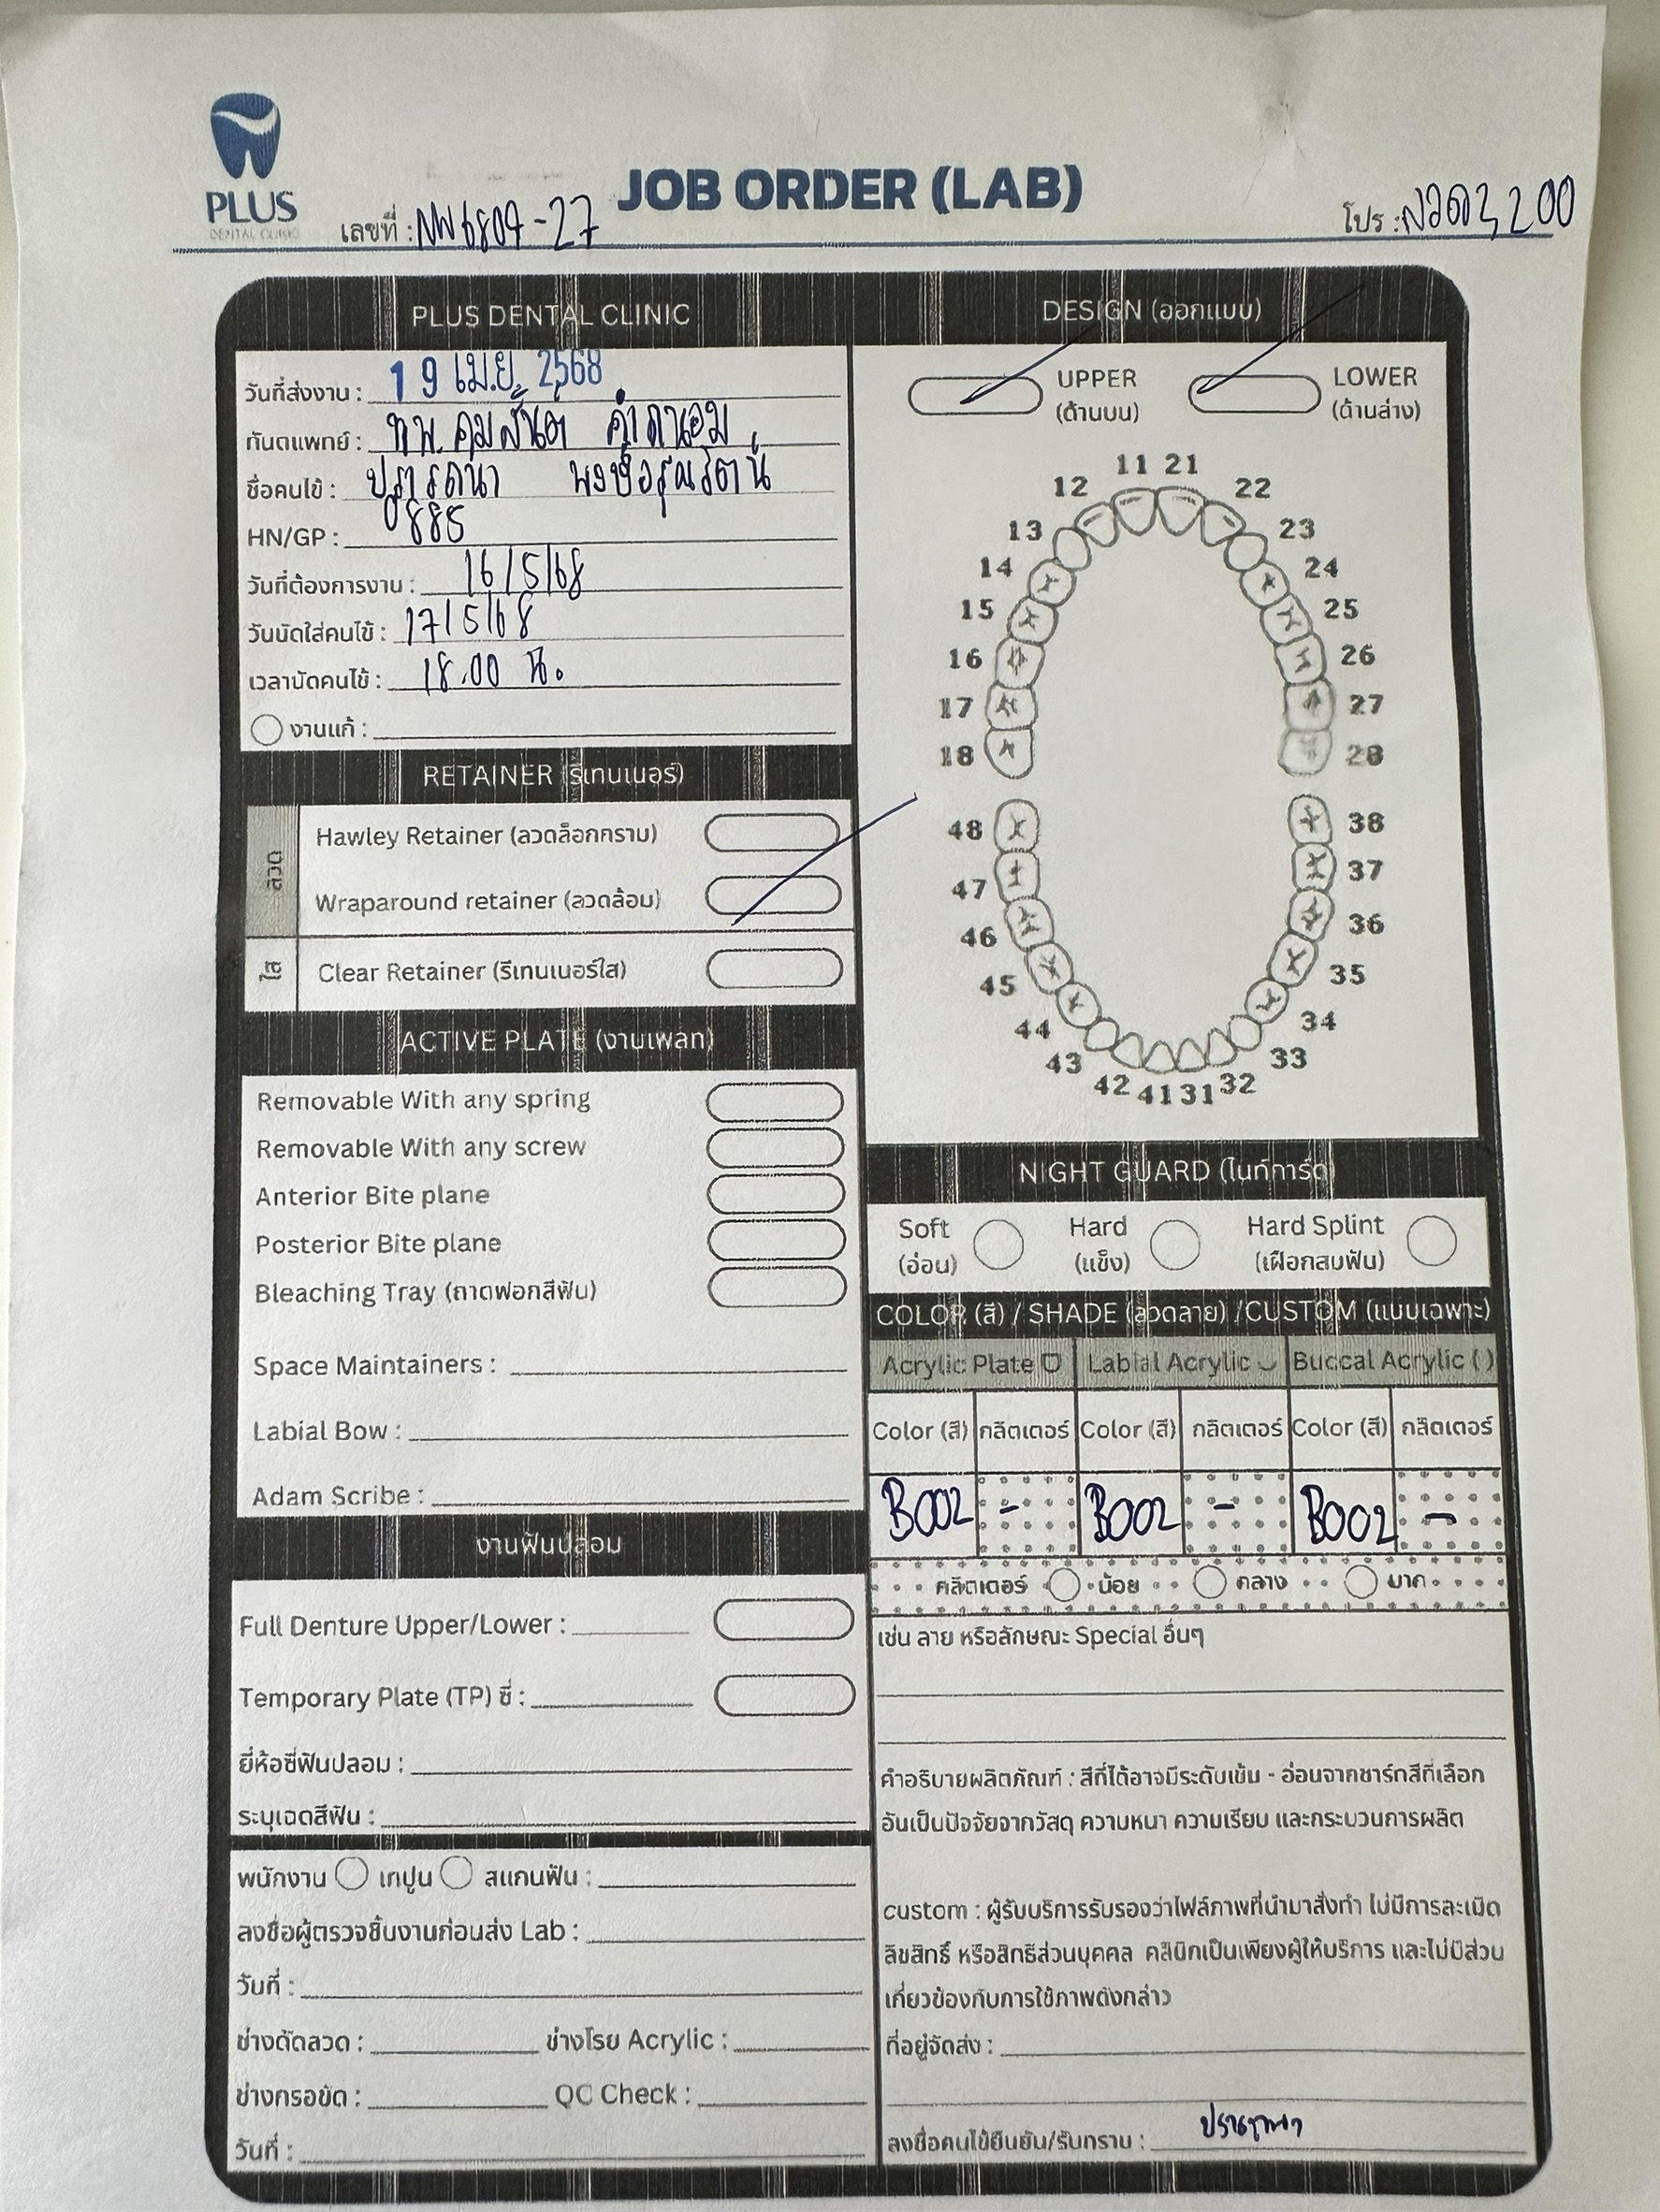 PLUS
DENTAL CLINIC
JOB ORDER (LAB)
เลขที่ : NW6804-27
โปร : ลวด 3,200
PLUS DENTAL CLINIC
วันที่ส่งงาน : 19 เม.ย. 2568
ทันตแพทย์ : ทพ. คมสันต์
ชื่อคนไข้ : ปรารถนา
HN/GP : 885
วันที่ต้องการงาน : 16/5/68
วันนัดใส่คนไข้ : 17/5/68
เวลานัดคนไข้ : 18.00 น.
งานแก้ :
RETAINER (รีเทนเนอร์)
ลวด
Hawley Retainer (ลวดล็อกคราม)
Wraparound retainer (ลวดล้อม)
ใส
Clear Retainer (รีเทนเนอร์ใส)
ACTIVE PLATE (งานเพลท)
Removable With any spring
Removable With any screw
Anterior Bite plane
Posterior Bite plane
Bleaching Tray (ถาดฟอกสีฟัน)
Space Maintainers :
Labial Bow :
Adam Scribe :
งานฟันปลอม
Full Denture Upper/Lower :
Temporary Plate (TP) ซี่ :
ยี่ห้อซี่ฟันปลอม :
ระบุเฉดสีฟัน :
พนักงาน เทปูน สแกนฟัน :
ลงชื่อผู้ตรวจชิ้นงานก่อนส่ง Lab :
วันที่ :
ช่างดัดลวด : ช่างโรย Acrylic :
ช่างกรอขัด : QC Check :
วันที่ :
DESIGN (ออกแบบ)
UPPER
(ด้านบน)
LOWER
(ด้านล่าง)
11 21
12 22
13 23
14 24
15 25
16 26
17 27
18 28
48 38
47 37
46 36
45 35
44 34
43 33
42 41 31 32
NIGHT GUARD (ไนท์การ์ด)
Soft
(อ่อน)
Hard
(แข็ง)
Hard Splint
(เฝือกสบฟัน)
COLOR (สี) / SHADE (ลวดลาย) /CUSTOM (แบบเฉพาะ)
Acrylic Plate Labial Acrylic Buccal Acrylic ( )
Color (สี) กลิตเตอร์ Color (สี) กลิตเตอร์ Color (สี) กลิตเตอร์
B002 - B002 - B002 -
กลิตเตอร์ น้อย กลาง มาก
เช่น ลาย หรือลักษณะ Special อื่นๆ
คำอธิบายผลิตภัณฑ์ : สีที่ได้อาจมีระดับเข้ม - อ่อนจากชาร์ทสีที่เลือก
อันเป็นปัจจัยจากวัสดุ ความหนา ความเรียบ และกระบวนการผลิต
custom : ผู้รับบริการรับรองว่าไฟล์ภาพที่นำมาสั่งทำ ไม่มีการละเมิด
ลิขสิทธิ์ หรือสิทธิส่วนบุคคล คลินิกเป็นเพียงผู้ให้บริการ และไม่มีส่วน
เกี่ยวข้องกับการใช้ภาพดังกล่าว
ที่อยู่จัดส่ง :
ลงชื่อคนไข้ยืนยัน/รับทราบ : ปรารถนา